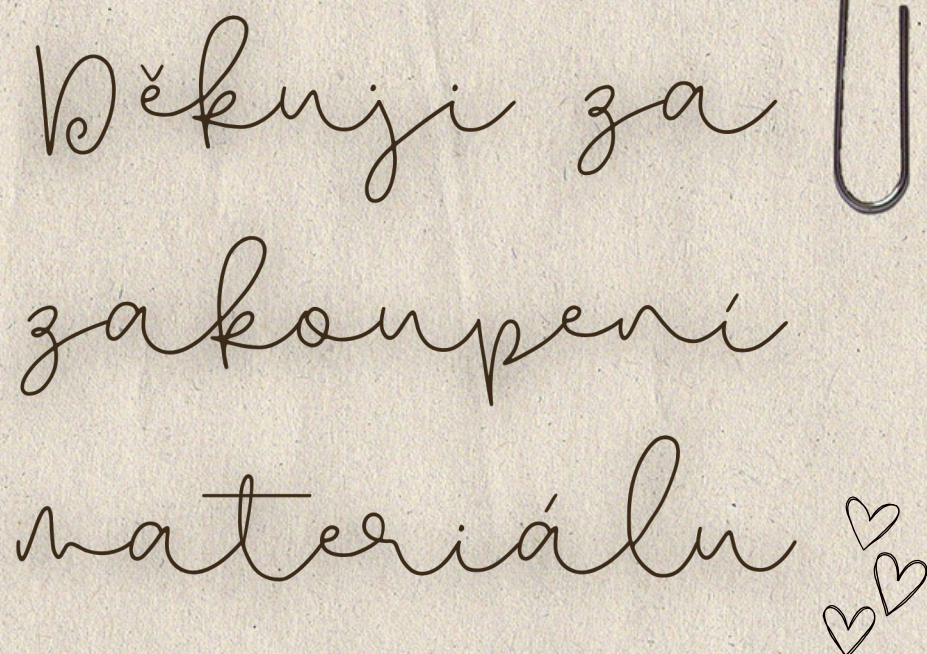 Děkuji za
zakoupení
materiálu